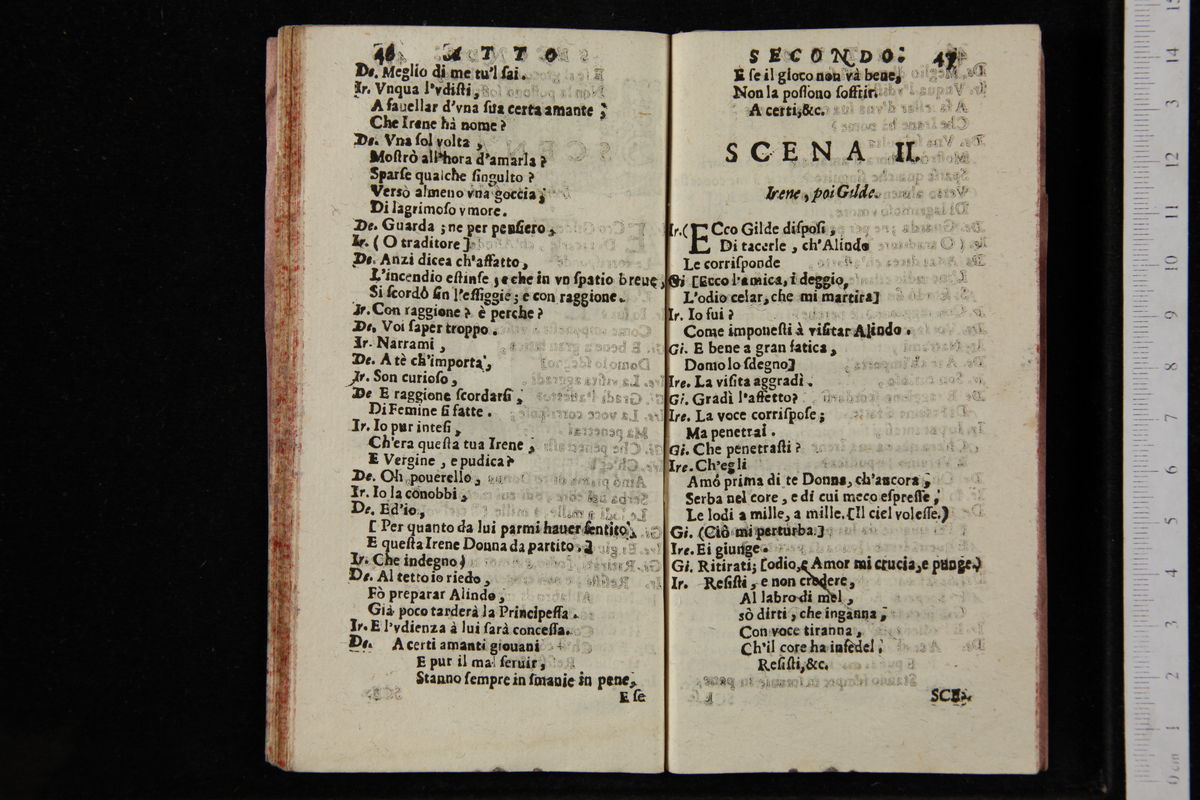 46 ATTO
De. Meglio di me tu'l sai.
Ir. Vnqua l'vdisti,
A fauellar d'vna sua certa amante;
Che Irene hà nome?
De. Vna sol volta,
Mostrò all'hora d'amarla?
Sparse qualche singulto?
Versò almeno vna goccia;
Di lagrimoso vmore.
De. Guarda; ne per pensiero,
Ir. (O traditore]
De. Anzi dicea ch'affatto,
L'incendio estinse, e che in vn spatio breue,
Si scordò sin l'effiggie; e con raggione.
Ir. Con raggione? è perche?
De. Voi saper troppo.
Ir. Narrami,
De. A tè ch'importa,
Ir. Son curioso,
De E raggione scordarsi,
Di Femine sì fatte.
Ir. Io pur intesi,
Ch'era questa tua Irene;
E Vergine, e pudica?
De. Oh pouerello,
Ir. Io la conobbi,
De. Ed'io,
[ Per quanto da lui parmi hauer sentito,
E questa Irene Donna da partito.]
Ir. Che indegno)
De. Al tetto io riedo,
Fò preparar Alindo,
Già poco tarderà la Principessa.
Ir. E l'vdienza à lui sarà concessa.
De. A certi amanti giouani
E pur il mal seruir,
Stanno sempre in smanie in pene,
E se
SECONDO. 47
E se il gioco non và bene,
Non la possono soffrir.
A certi, &c.
SCENA II.
Irene, poi Gilde.
Ir. (ECco Gilde disposi,
Di tacerle, ch'Alindo
Le corrisponde
Gi [Ecco l'amica, i deggio,
L'odio celar, che mi martira]
Ir. Io fui?
Come imponesti à visitar Alindo.
Gi. E bene a gran fatica,
Domo lo sdegno]
Ire. La visita aggradì.
Gi. Gradì l'affetto?
Ire. La voce corrispose;
Ma penetrai.
Gi. Che penetrasti?
Ire. Ch'egli
Amò prima di te Donna, ch'ancora;
Serba nel core, e di cui meco espresse,
Le lodi a mille, a mille. [Il ciel volesse.)
Gi. (Ciò mi perturba.]
Ire. Ei giunge.
Gi. Ritirati; [odio, e Amor mi crucia, e punge.)
Ir. Resisti, e non credere,
Al labro di mel,
sò dirti, che inganna;
Con voce tiranna,
Ch'il core ha infedel.
Resisti, &c.
SCE-